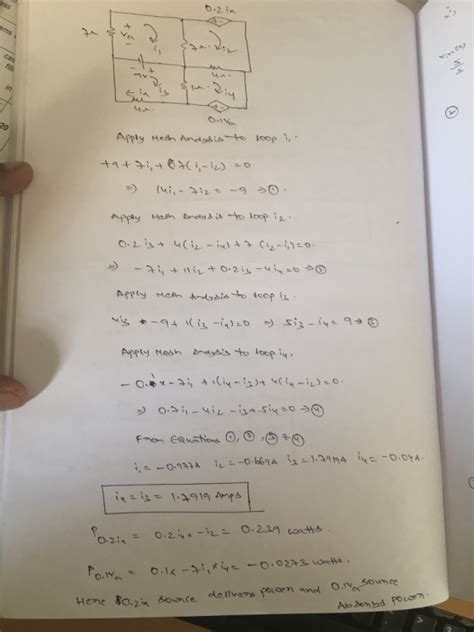 0.2ia
7Ω
+
va
-
i1
7Ω
i2
9V
4Ω
ia
i3
1Ω
i4
4Ω
0.1va
Apply Mesh Analysis to loop i1
+9+7i1+7(i1-i2)=0.
⇒ 14i1-7i2=-9 → ①.
Apply Mesh Analysis to loop i2.
0.2i3+4(i2-i4)+7(i2-i1)=0.
⇒ -7i1+11i2+0.2i3-4i4=0 → ②
Apply Mesh Analysis to loop i3.
4i3-9+1(i3-i4)=0 ⇒ 5i3-i4=9 → ③
Apply Mesh Analysis to loop i4.
-0.1x-7i1+1(i4-i3)+4(i4-i2)=0.
⇒ 0.7i1-4i2-i3+5i4=0 → ④
From Equations ①, ②, ③ & ④
i1=-0.977A i2=-0.669A i3=1.7919A i4=-0.04A.
ix=i3=1.7919 Amps
P0.2ix = 0.2ix x-i2 = 0.239 watts.
P0.1va = 0.1x-7i1xi4 = -0.0273 watts.
Here 0.2ia source delivers power and 0.1va source
Absorbed power.